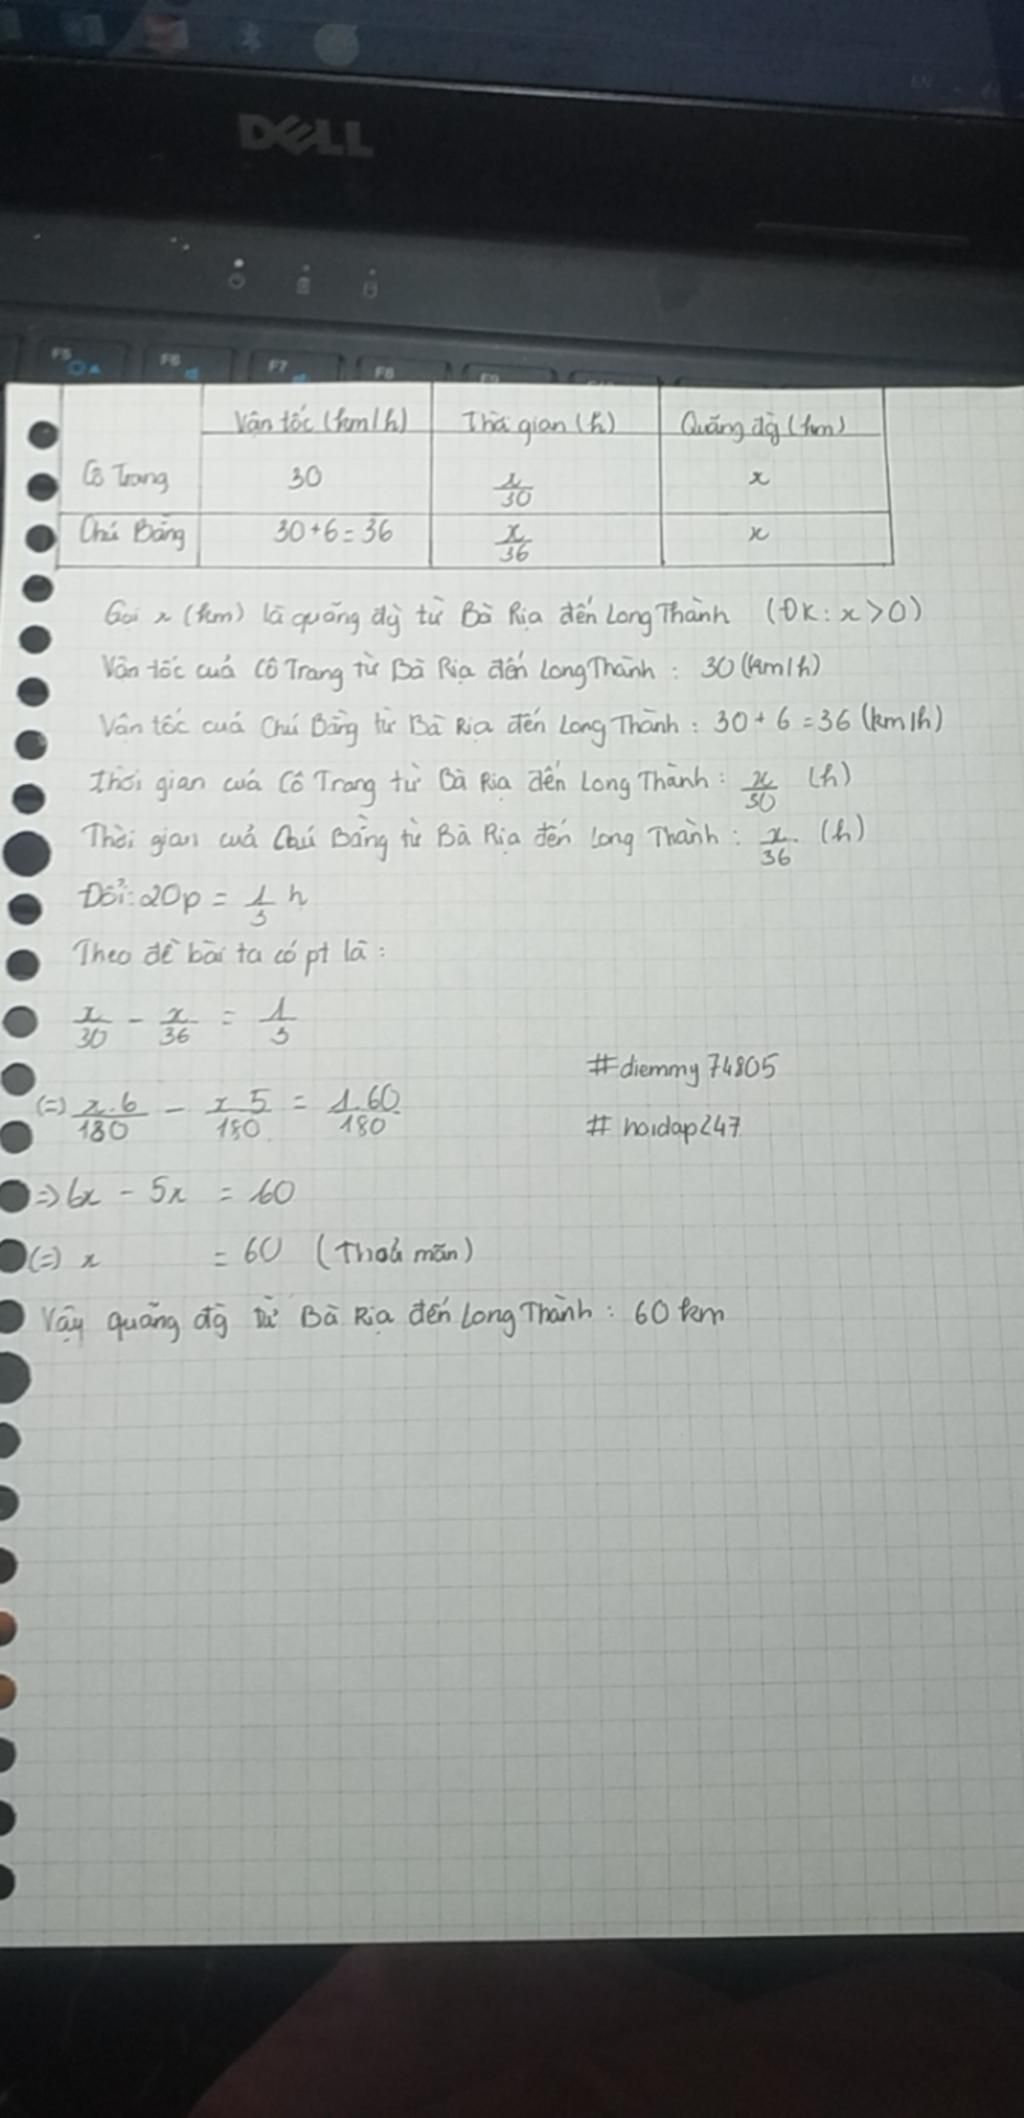 DELL
F5 F6 F7 F8 F9
Vận tốc (km/h) Thời gian (h) Quãng đg (km)
Cô Trang 30 x/30 x
Chú Bằng 30+6=36 x/36 x
Gọi x (km) là quãng đg từ Bà Rịa đến Long Thành (ĐK: x>0)
Vận tốc cuả Cô Trang từ Bà Rịa đến Long Thành : 30 (km/h)
Vận tốc cuả Chú Bằng từ Bà Rịa đến Long Thành : 30 + 6 = 36 (km/h)
Thời gian cuả Cô Trang từ Bà Rịa đến Long Thành : x/30 (h)
Thời gian cuả Chú Bằng từ Bà Rịa đến Long Thành : x/36 (h)
Đổi: 20p = 1/3 h
Theo đề bài ta có pt là :
x/30 - x/36 = 1/3
#diemmy74805
(=) x.6/180 - x.5/180 = 1.60/180
# hoidap247
=> 6x - 5x = 60
(=) x = 60 (Thoả mãn)
Vậy quãng đg từ Bà Rịa đến Long Thành : 60 km